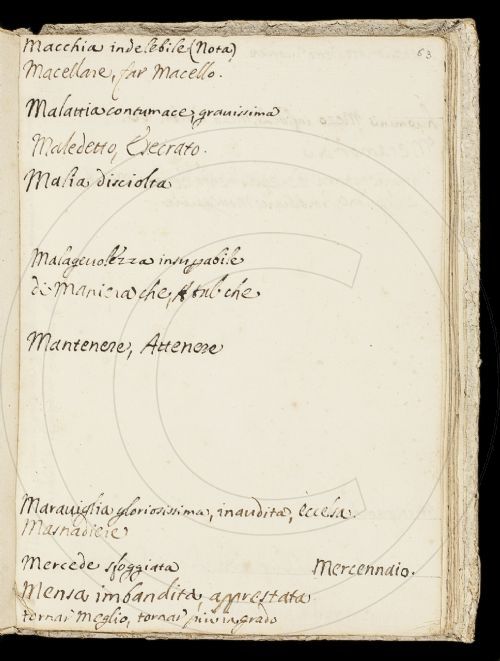 63
Macchia indelebile (Nota)
Macellare, far Macello.
Malattia contumace, gravissima
Maledetto, Esecrato.
Malia disciolta
Malagevolezza insuperabile
di Maniera che, tal che
Mantenere, Attenere
Maraviglia gloriosissima, inaudita, eccelsa.
Masnadiere
Mercede sfoggiata Mercennaio.
Mensa imbandita, apprestata
tornar meglio, tornar più in grado